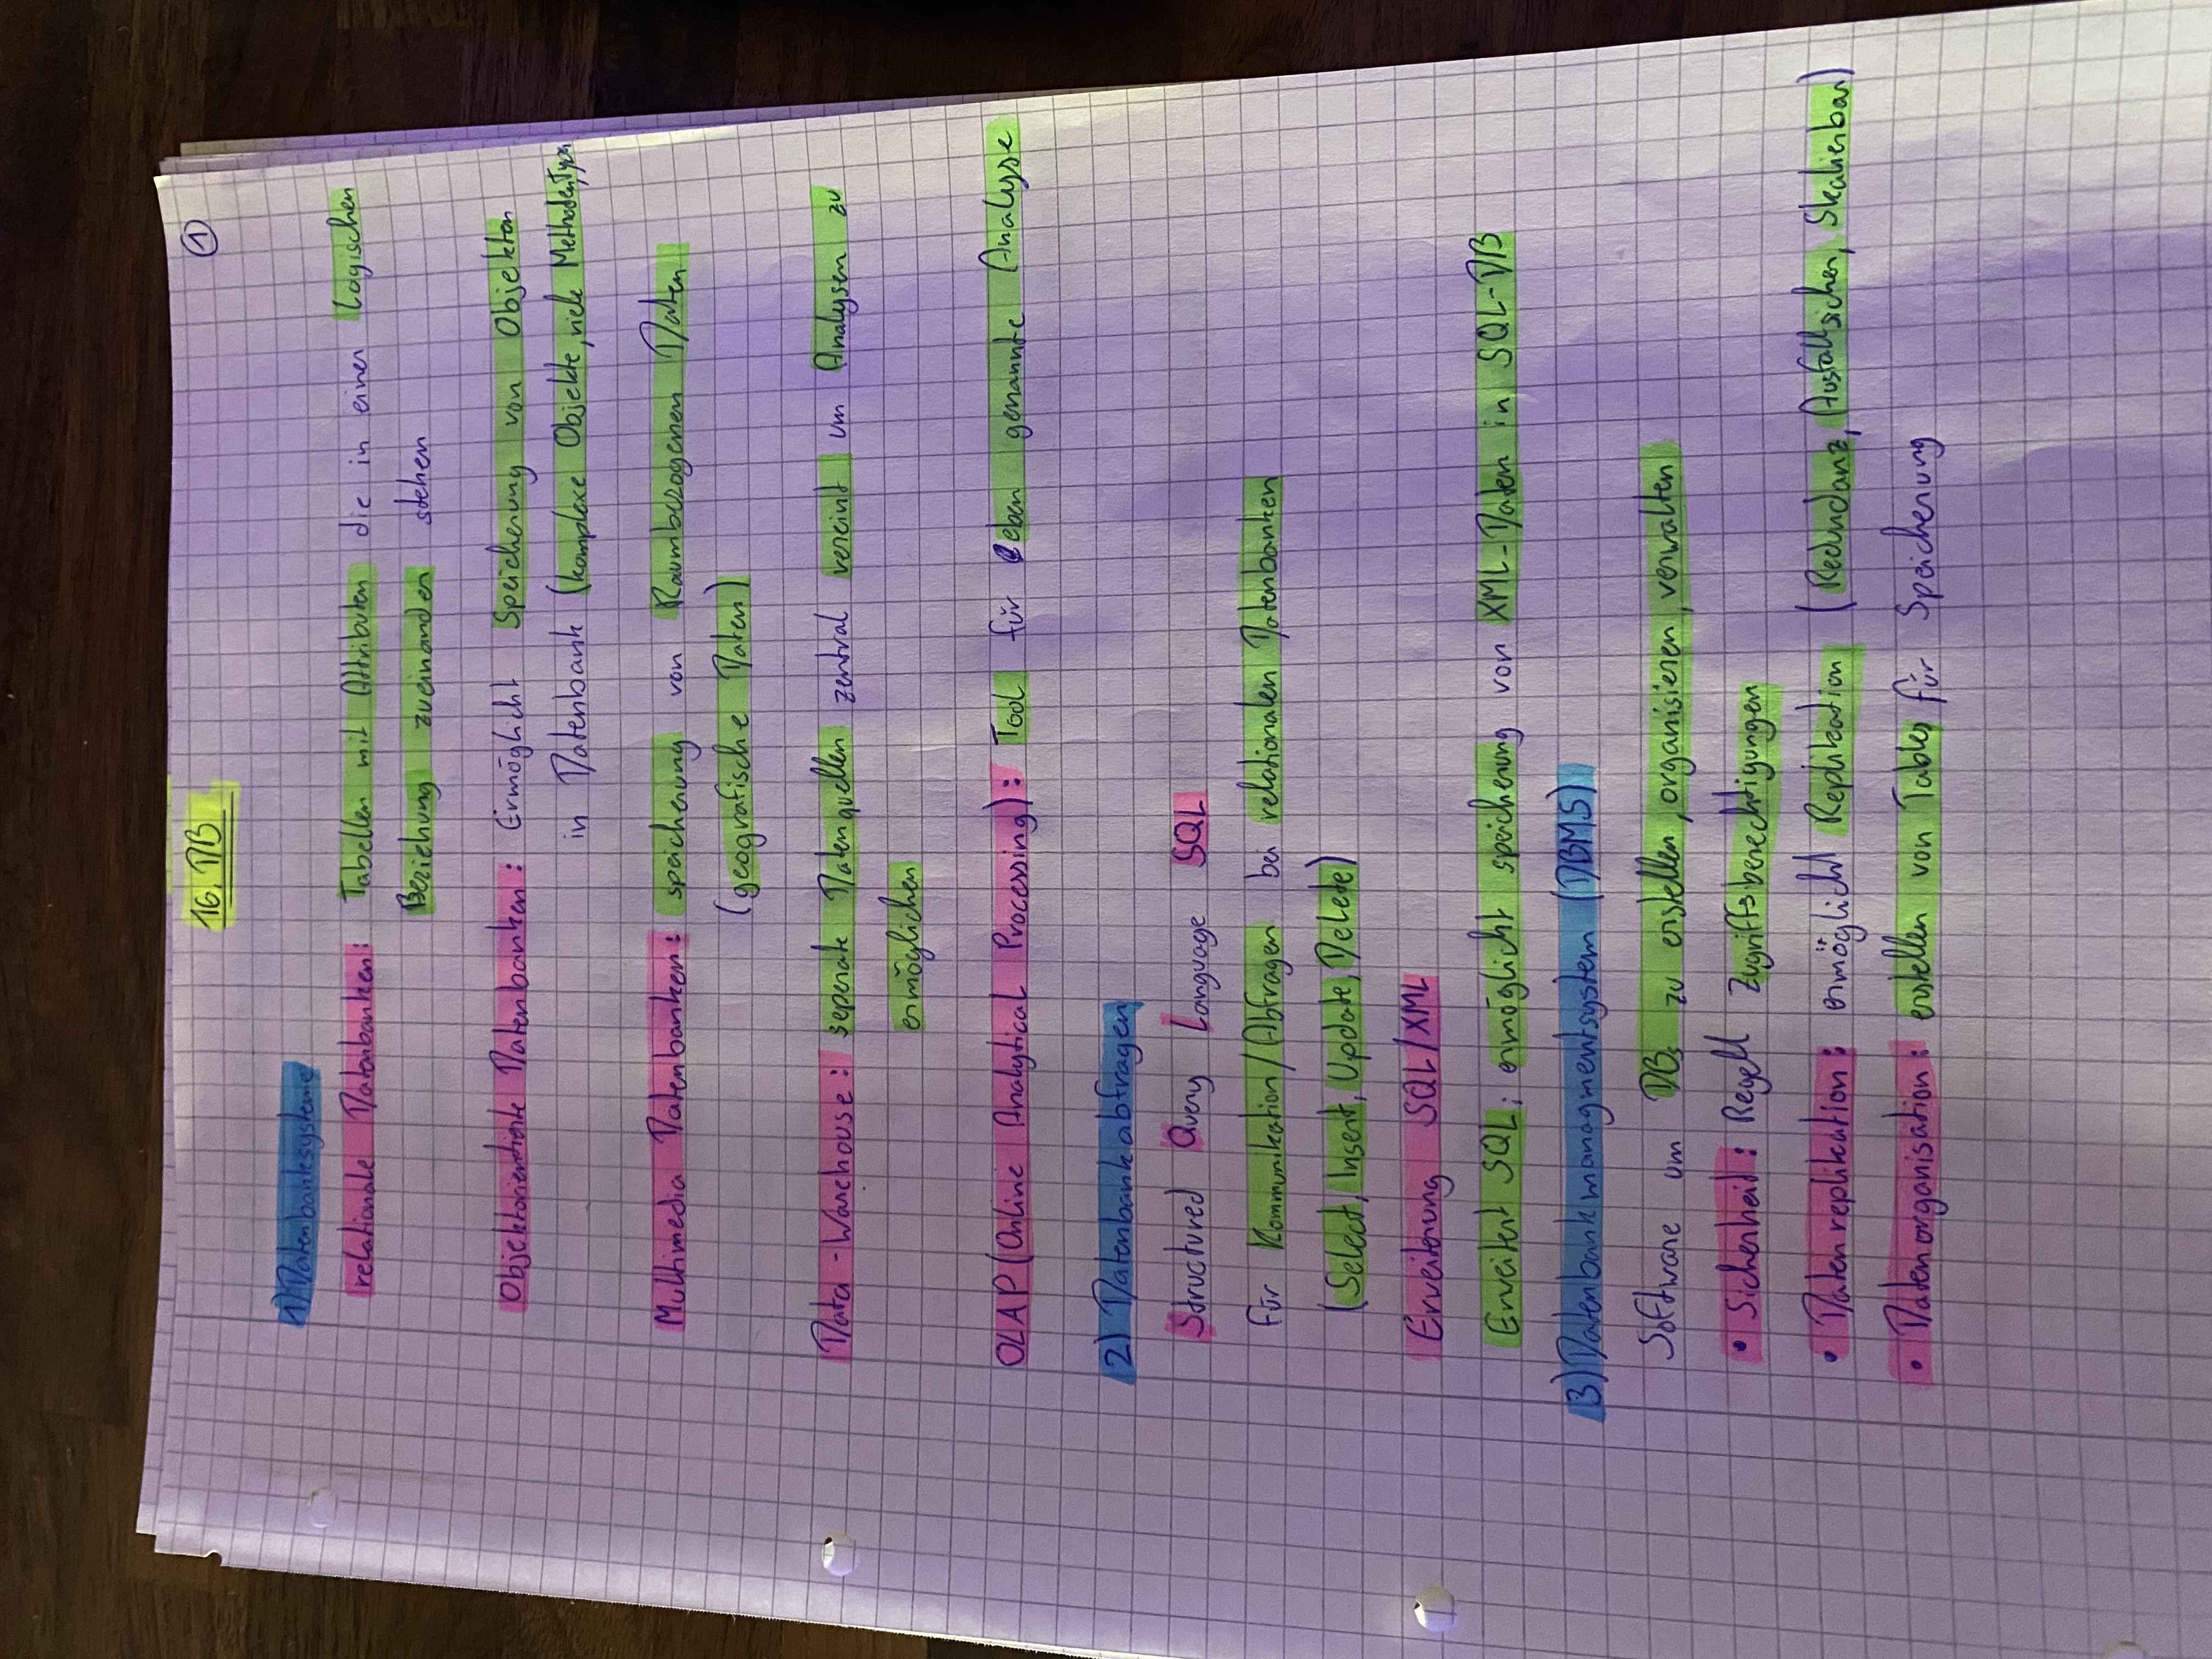 16. DB
①
1) Datenbanksysteme
relationale Datenbanken: Tabellen mit Attributen die in einer Logischen
Beziehung zueinander stehen
Objektorientierte Datenbanken: Ermöglicht Speicherung von Objekten
in Datenbank (komplexe Objekte, viele Methoden, Typen
Multimedia Datenbanken: speicherung von Raumbezogenen Daten
(geografische Daten)
Data-Warehouse: seperate Datenquellen zentral vereint um Analysen zu
ermöglichen
OLAP (Online Analytical Processing): Tool für eben genannte Analyse
2) Datenbankabfragen
Structured Query Language SQL
für Kommunikation/Abfragen bei relationalen Datenbanken
(Select, Insert, Update, Delete)
Erweiterung SQL/XML
Erweitert SQL; ermöglicht speicherung von XML-Daten in SQL-DB
3) Datenbankmanagmentsystem (DBMS)
Software um DBs zu erstellen, organisieren, verwalten
• Sicherheit: Regelt Zugriffsberechtigungen
• Datenreplikation: ermöglicht Replikation (Redundanz, Ausfallsicher, Skalierbar)
• Datenorganisation: erstellen von Tables für Speicherung